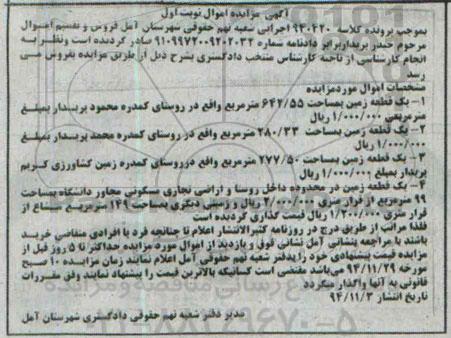 آگهی مزایده اموال نوبت اول
بموجب پرونده کلاسه ۹۴۰۴۲۰ اجرایی شعبه نهم حقوقی شهرستان آمل فروش و تقسیم اموال
مرحوم حیدر پریدار برابر دادنامه شماره ۹۱۰۹۹۷۲۰۰۹۲۰۲۰۳۲ صادر گردیده است ونظر به
انجام کارشناسی از ناحیه کارشناس منتخب دادگستری بشرح ذیل از طریق مزایده بفروش می
رسد
مشخصات اموال مورد مزایده
۱- یک قطعه زمین بمساحت ۶۴۲/۵۵ مترمربع واقع در روستای کمدره محمود پریدار بمبلغ
مترمربعی ۱/۰۰۰/۰۰۰ ریال
۲- یک قطعه زمین بمساحت ۲۸۰/۳۳ مترمربع واقع در روستای کمدره محمد پریدار بمبلغ
۱/۰۰۰/۰۰۰ ریال
۳ - یک قطعه زمین بمساحت ۲۷۷/۵۰ مترمربع واقع درروستای کمدره زمین کشاورزی کریم
پریدار بمبلغ ۱/۰۰۰/۰۰۰ ریال
۴- یک قطعه زمین در محدوده داخل روستا و اراضی تجاری مسکونی مجاور دانشگاه بمساحت
۹۹ مترمربع از قرار متری ۲/۰۰۰/۰۰۰ ریال و زمینی دیگری بمساحت ۱۴۹ مترمربع مشاع از
قرار متری ۱/۲۰۰/۰۰۰ ریال قیمت گذاری گردیده است
فلذا مراتب از طریق درج در روزنامه کثیرالانتشار اعلام تا چنانچه فرد یا افرادی متقاضی خرید
باشند با مراجعه بنشانی آمل نشانی فوق و بازدید از اموال مورد مزایده حداکثر تا ۵ روز قبل از
مزایده قیمت پیشنهادی خود را بدفتر شعبه نهم حقوقی آمل اعلام نمایند زمان مزایده ۱۰ صبح
مورخه ۹۴/۱۱/۲۹ می‌باشد مقتضی است کسانیکه بالاترین قیمت را پیشنهاد نمایند وفق مقررات
قانونی به آنها واگذار میگردد
تاریخ انتشار ۹۴/۱۱/۳
مدیر دفتر شعبه نهم حقوقی دادگستری شهرستان آمل